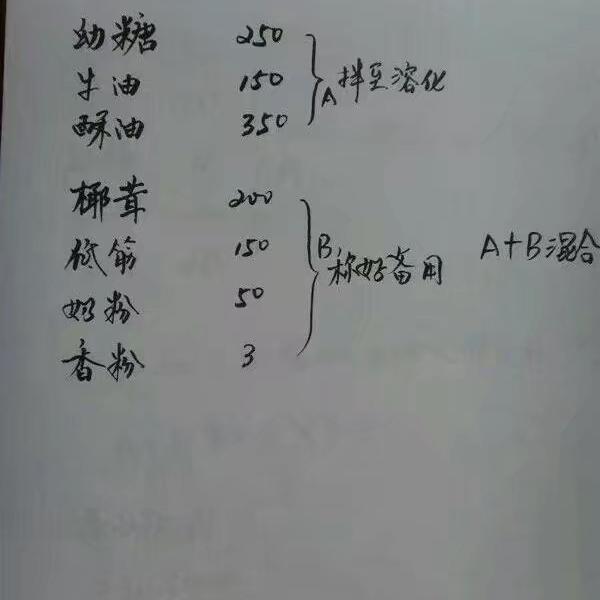 幼糖 250
牛油 150 A 拌至溶化
酥油 350
椰茸 200
低筋 150 B 称好备用 A+B混合
奶粉 50
香粉 3